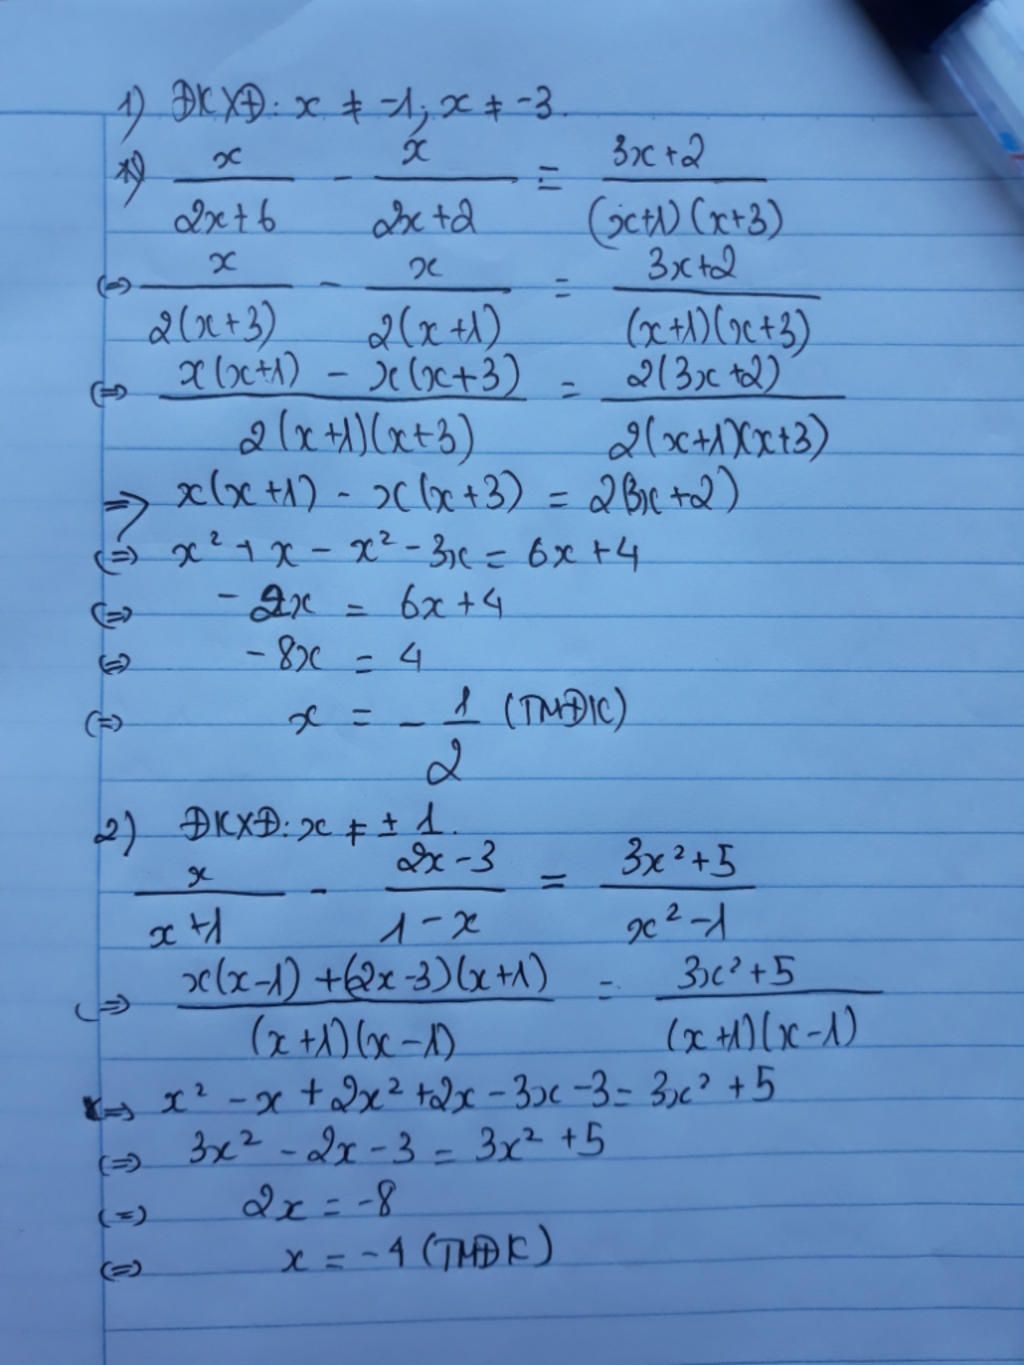 1) ĐKXĐ: x ≠ -1; x ≠ -3.
*) x/(2x+6) - x/(2x+2) = (3x+2)/((x+1)(x+3))
(=) x/(2(x+3)) - x/(2(x+1)) = (3x+2)/((x+1)(x+3))
(=) (x(x+1) - x(x+3))/(2(x+1)(x+3)) = (2(3x+2))/(2(x+1)(x+3))
=> x(x+1) - x(x+3) = 2(3x+2)
(=) x² + x - x² - 3x = 6x + 4
(=) -2x = 6x + 4
(=) -8x = 4
(=) x = -1/2 (TMĐK)
2) ĐKXĐ: x ≠ ± 1.
x/(x+1) - (2x-3)/(1-x) = (3x²+5)/(x²-1)
(=) (x(x-1) + (2x-3)(x+1))/((x+1)(x-1)) = (3x²+5)/((x+1)(x-1))
=> x² - x + 2x² + 2x - 3x - 3 = 3x² + 5
(=) 3x² - 2x - 3 = 3x² + 5
(=) 2x = -8
(=) x = -4 (TMĐK)